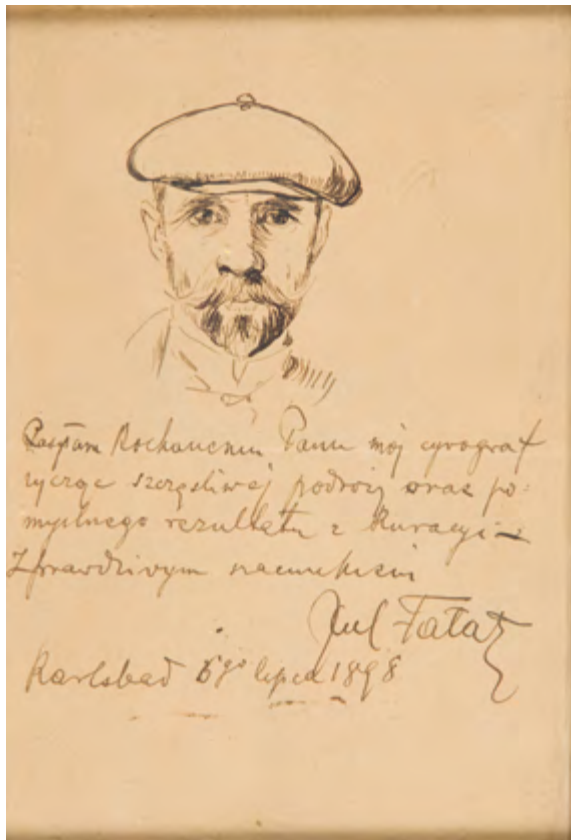 Kochanemu Panu mój cyrograf
życząc szczęśliwej podróży oraz po-
myślnego rezultatu z Kuracyi –
Z prawdziwym szacunkiem
Jul Fałat
Karlsbad 5go lipca 1898